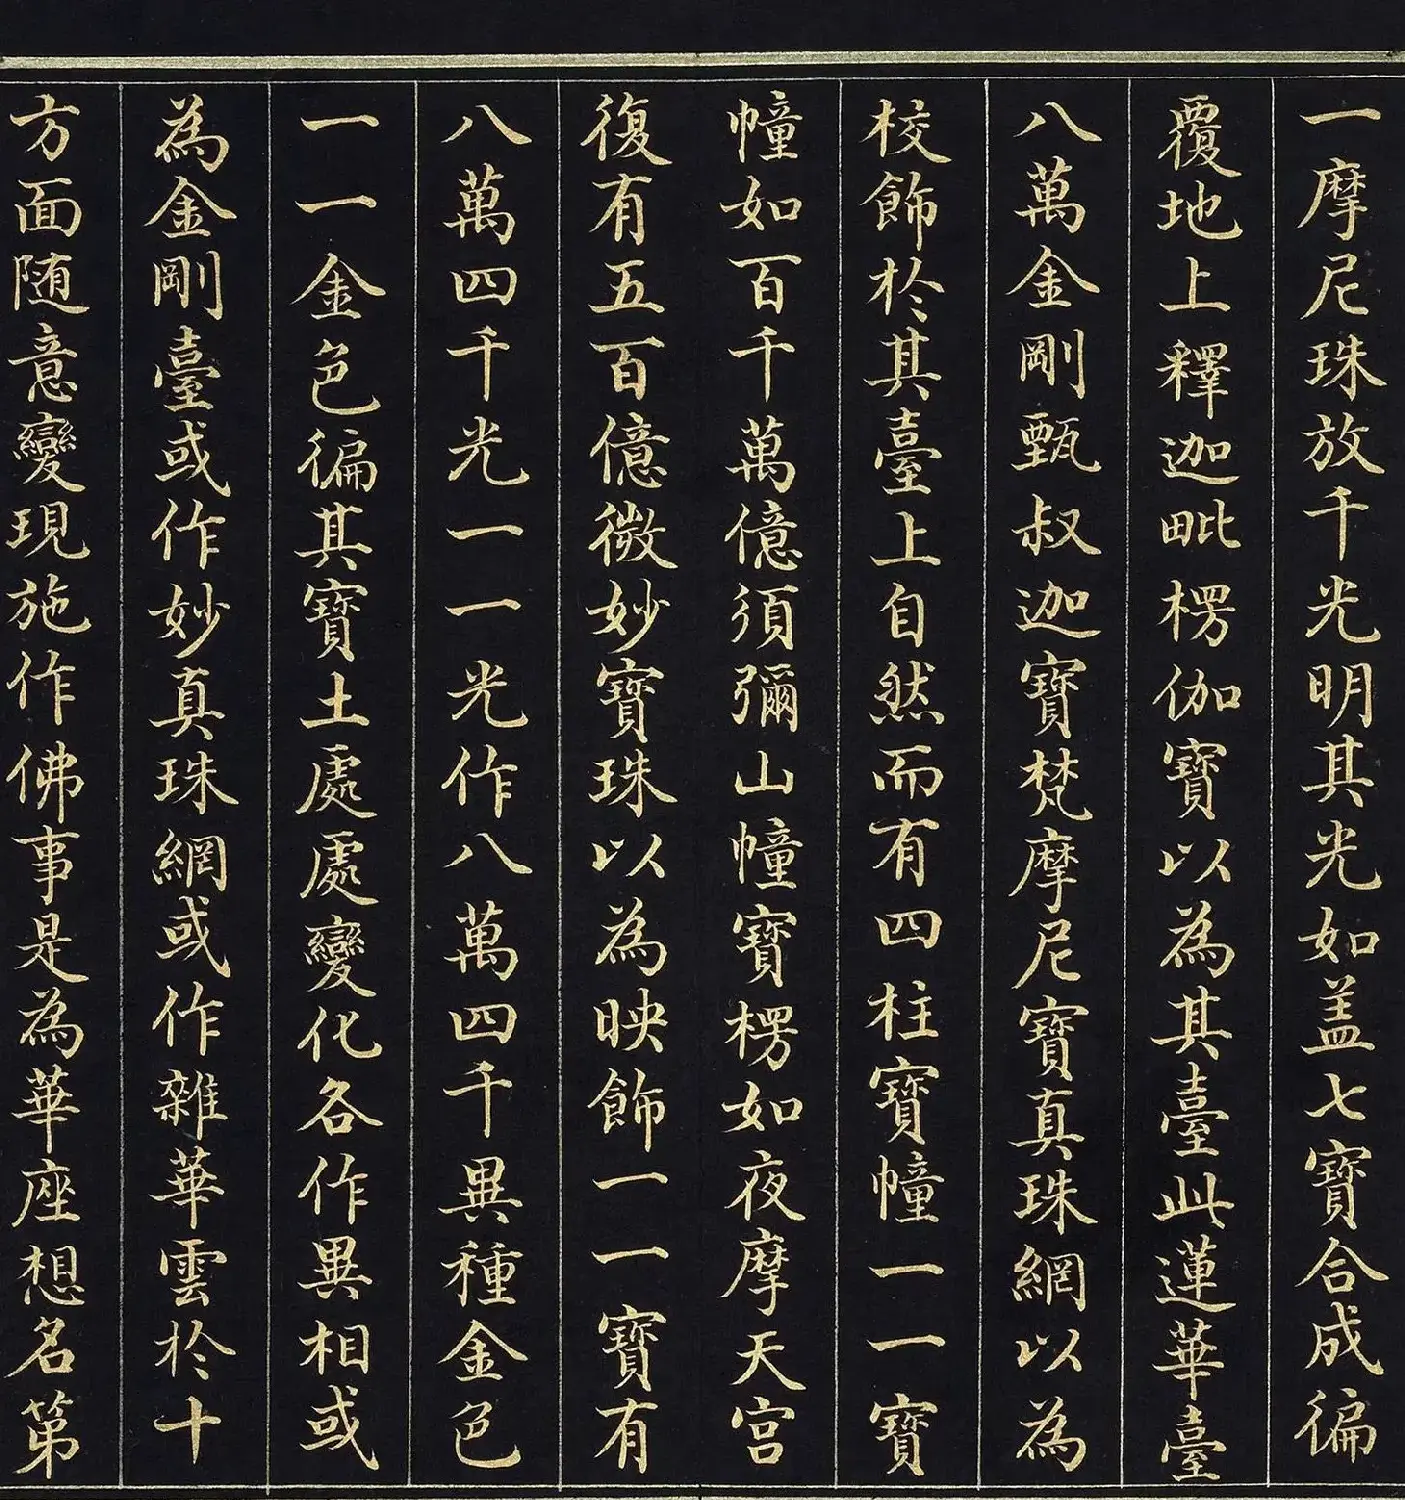 一摩尼珠放千光明其光如盖七寶合成徧
覆地上釋迦毗楞伽寶以為其臺此蓮華臺
八萬金剛甄叔迦寶梵摩尼寶真珠網以為
校飾於其臺上自然而有四柱寶幢一一寶
幢如百千萬億須彌山幢寶楞如夜摩天宮
復有五百億微妙寶珠以為映飾一一寶有
八萬四千光一一光作八萬四千異種金色
一一金色徧其寶土處處變化各作異相或
為金剛臺或作妙真珠網或作雜華雲於十
方面随意變現施作佛事是為華座想名第